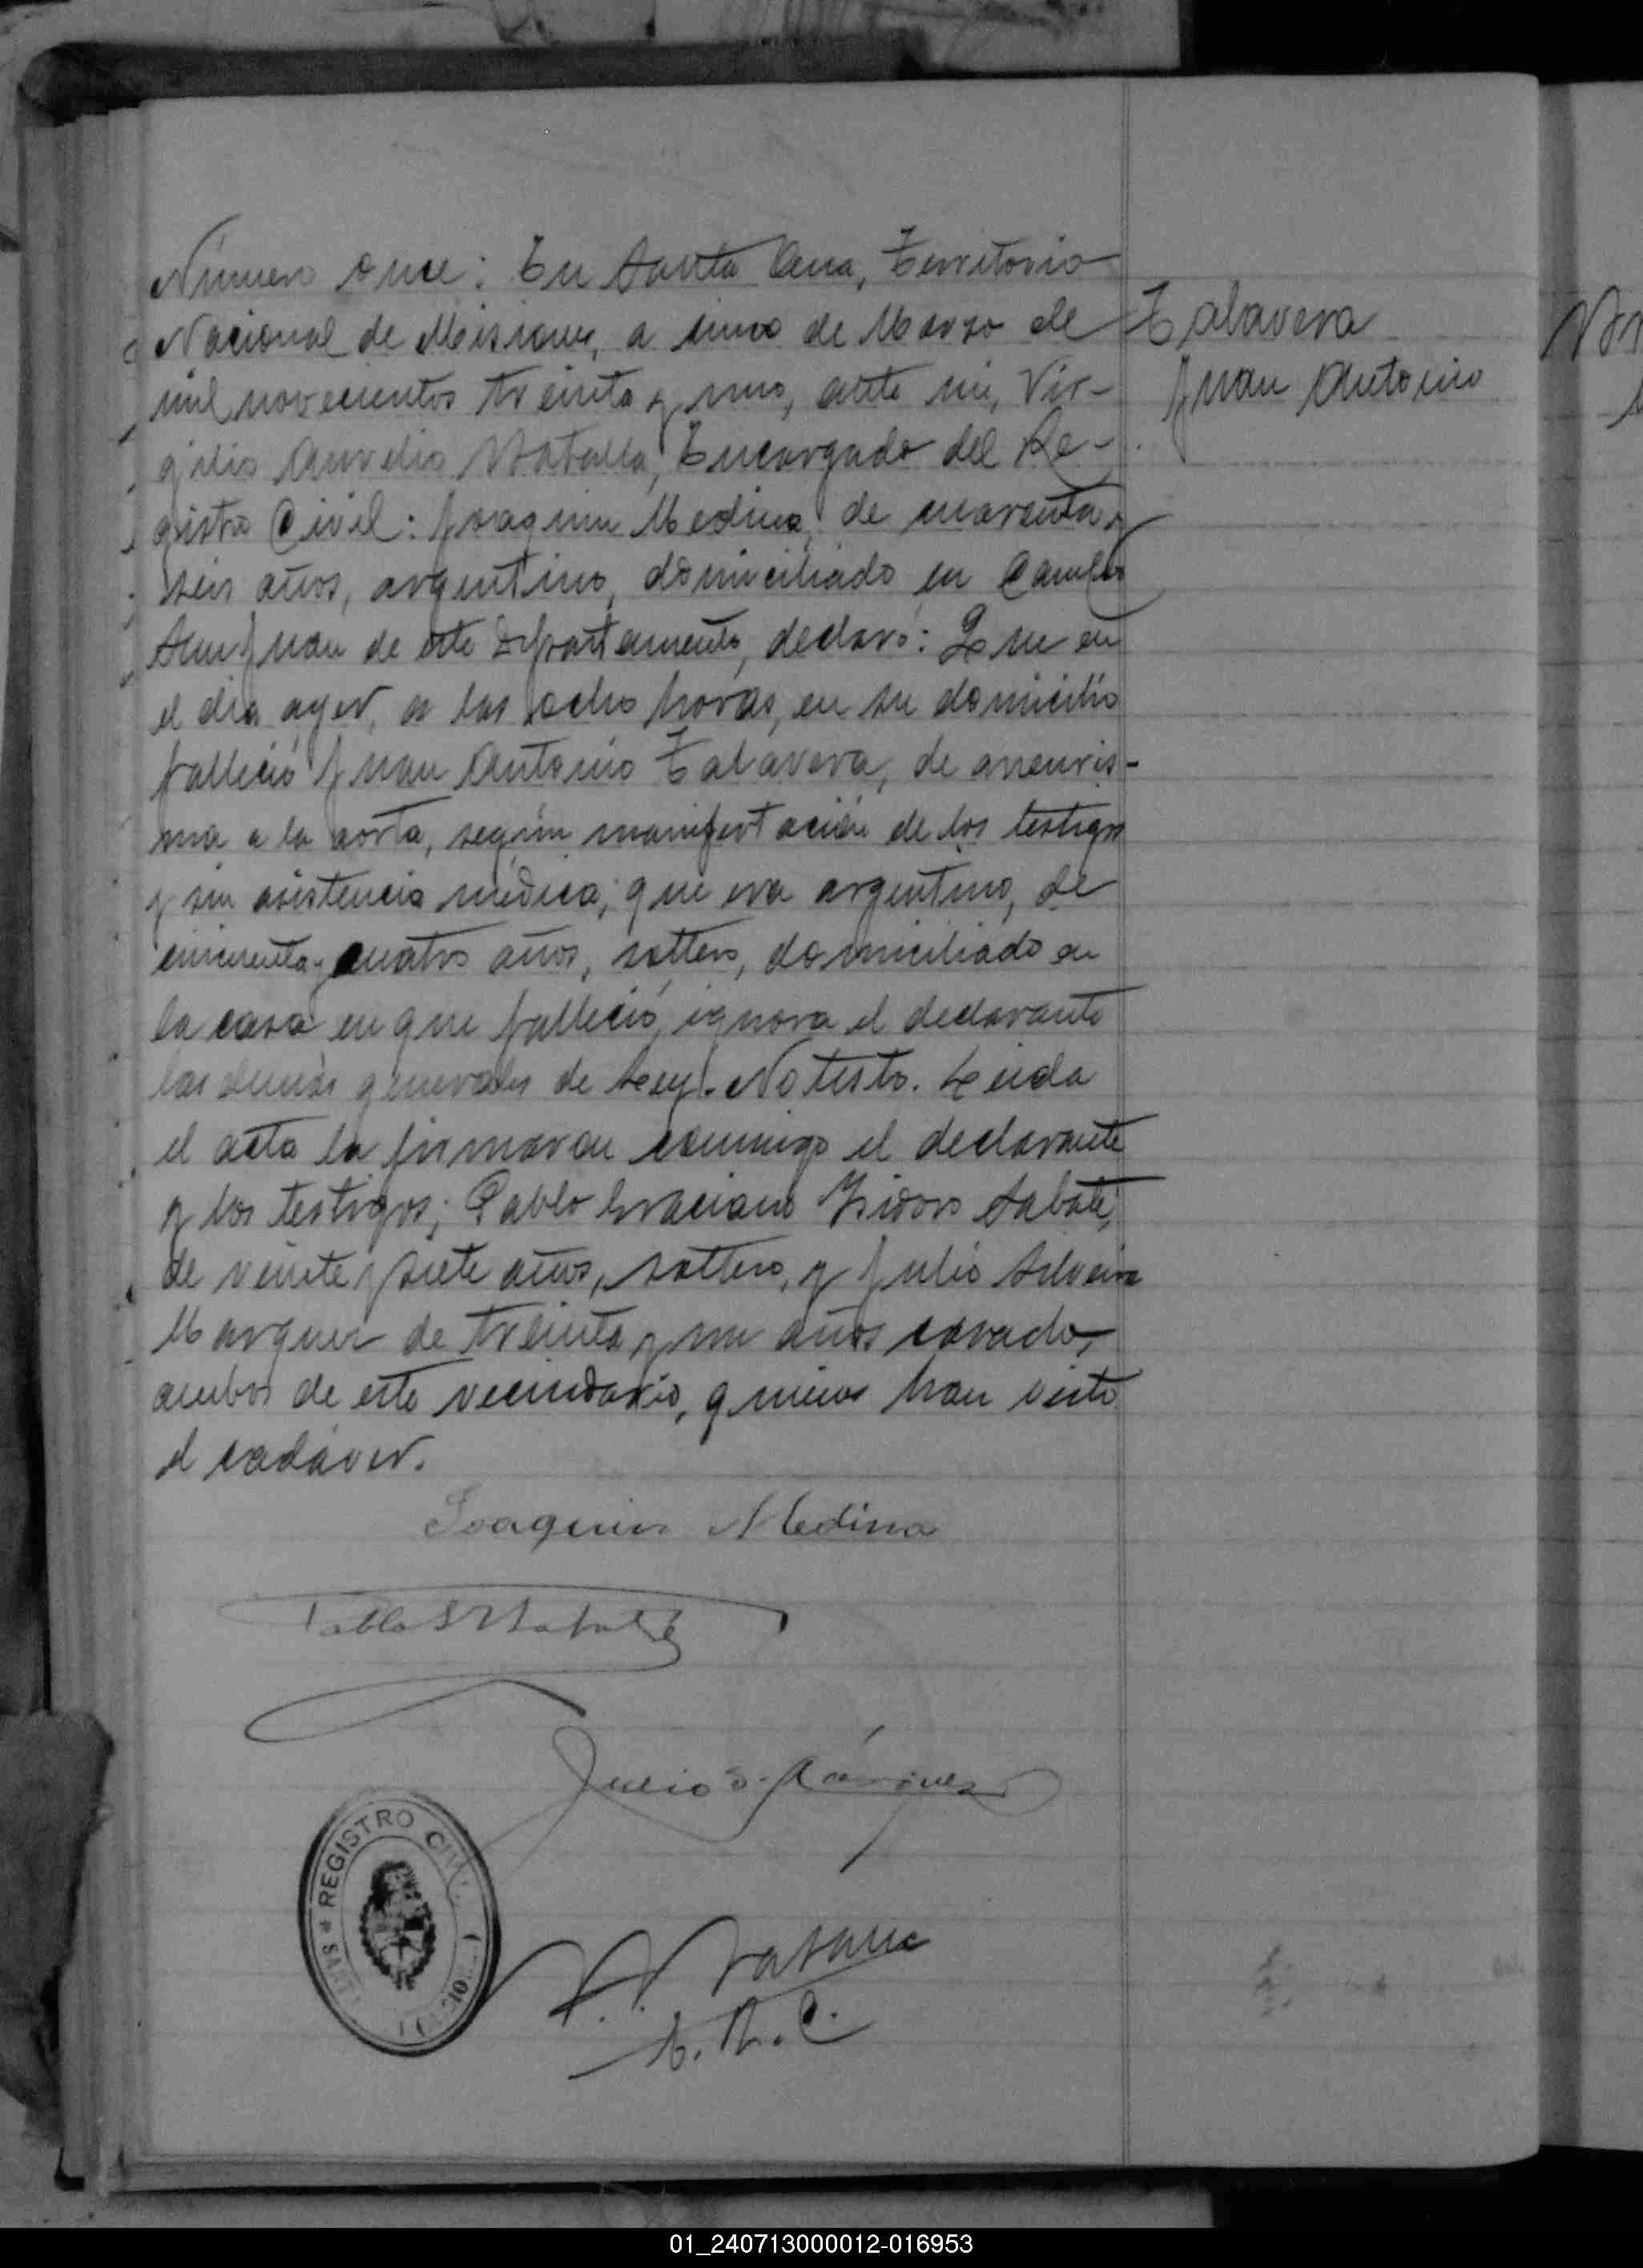 Número once: En Santa Ana, Territorio
Nacional de Misiones, a cinco de Marzo de
mil novecientos treinta y uno, ante mi, Vir-
gilio Aurelio Natalla, Encargado del Re-
gistro Civil: Joaquin Medina, de cuarenta y
seis años, argentino, domiciliado en Campo
San Juan de este Departamento, declaró: Que en
el dia ayer, a las ocho horas, en su domicilio
falleció Juan Antonio Talavera, de aneuris-
ma a la aorta, según manifestación de los testigos
y sin asistencia médica; que era argentino, de
cincuenta y cuatro años, soltero, domiciliado en
la casa en que falleció, ignora el declarante
las demás generales de Ley. No testo. Leida
el acta la firmaron conmigo el declarante
y los testigos; Pablo Graciano Isidoro Sabaté,
de veinte y siete años, soltero, y Julio Silveira
Marquez de treinta y un años casado,
ambos de este vecindario, quienes han visto
el cadáver.
Talavera
Juan Antonio
Joaquin Medina
Pablo
Julio S. Márquez
E.R.C.
REGISTRO CIVIL
01_240713000012-016953